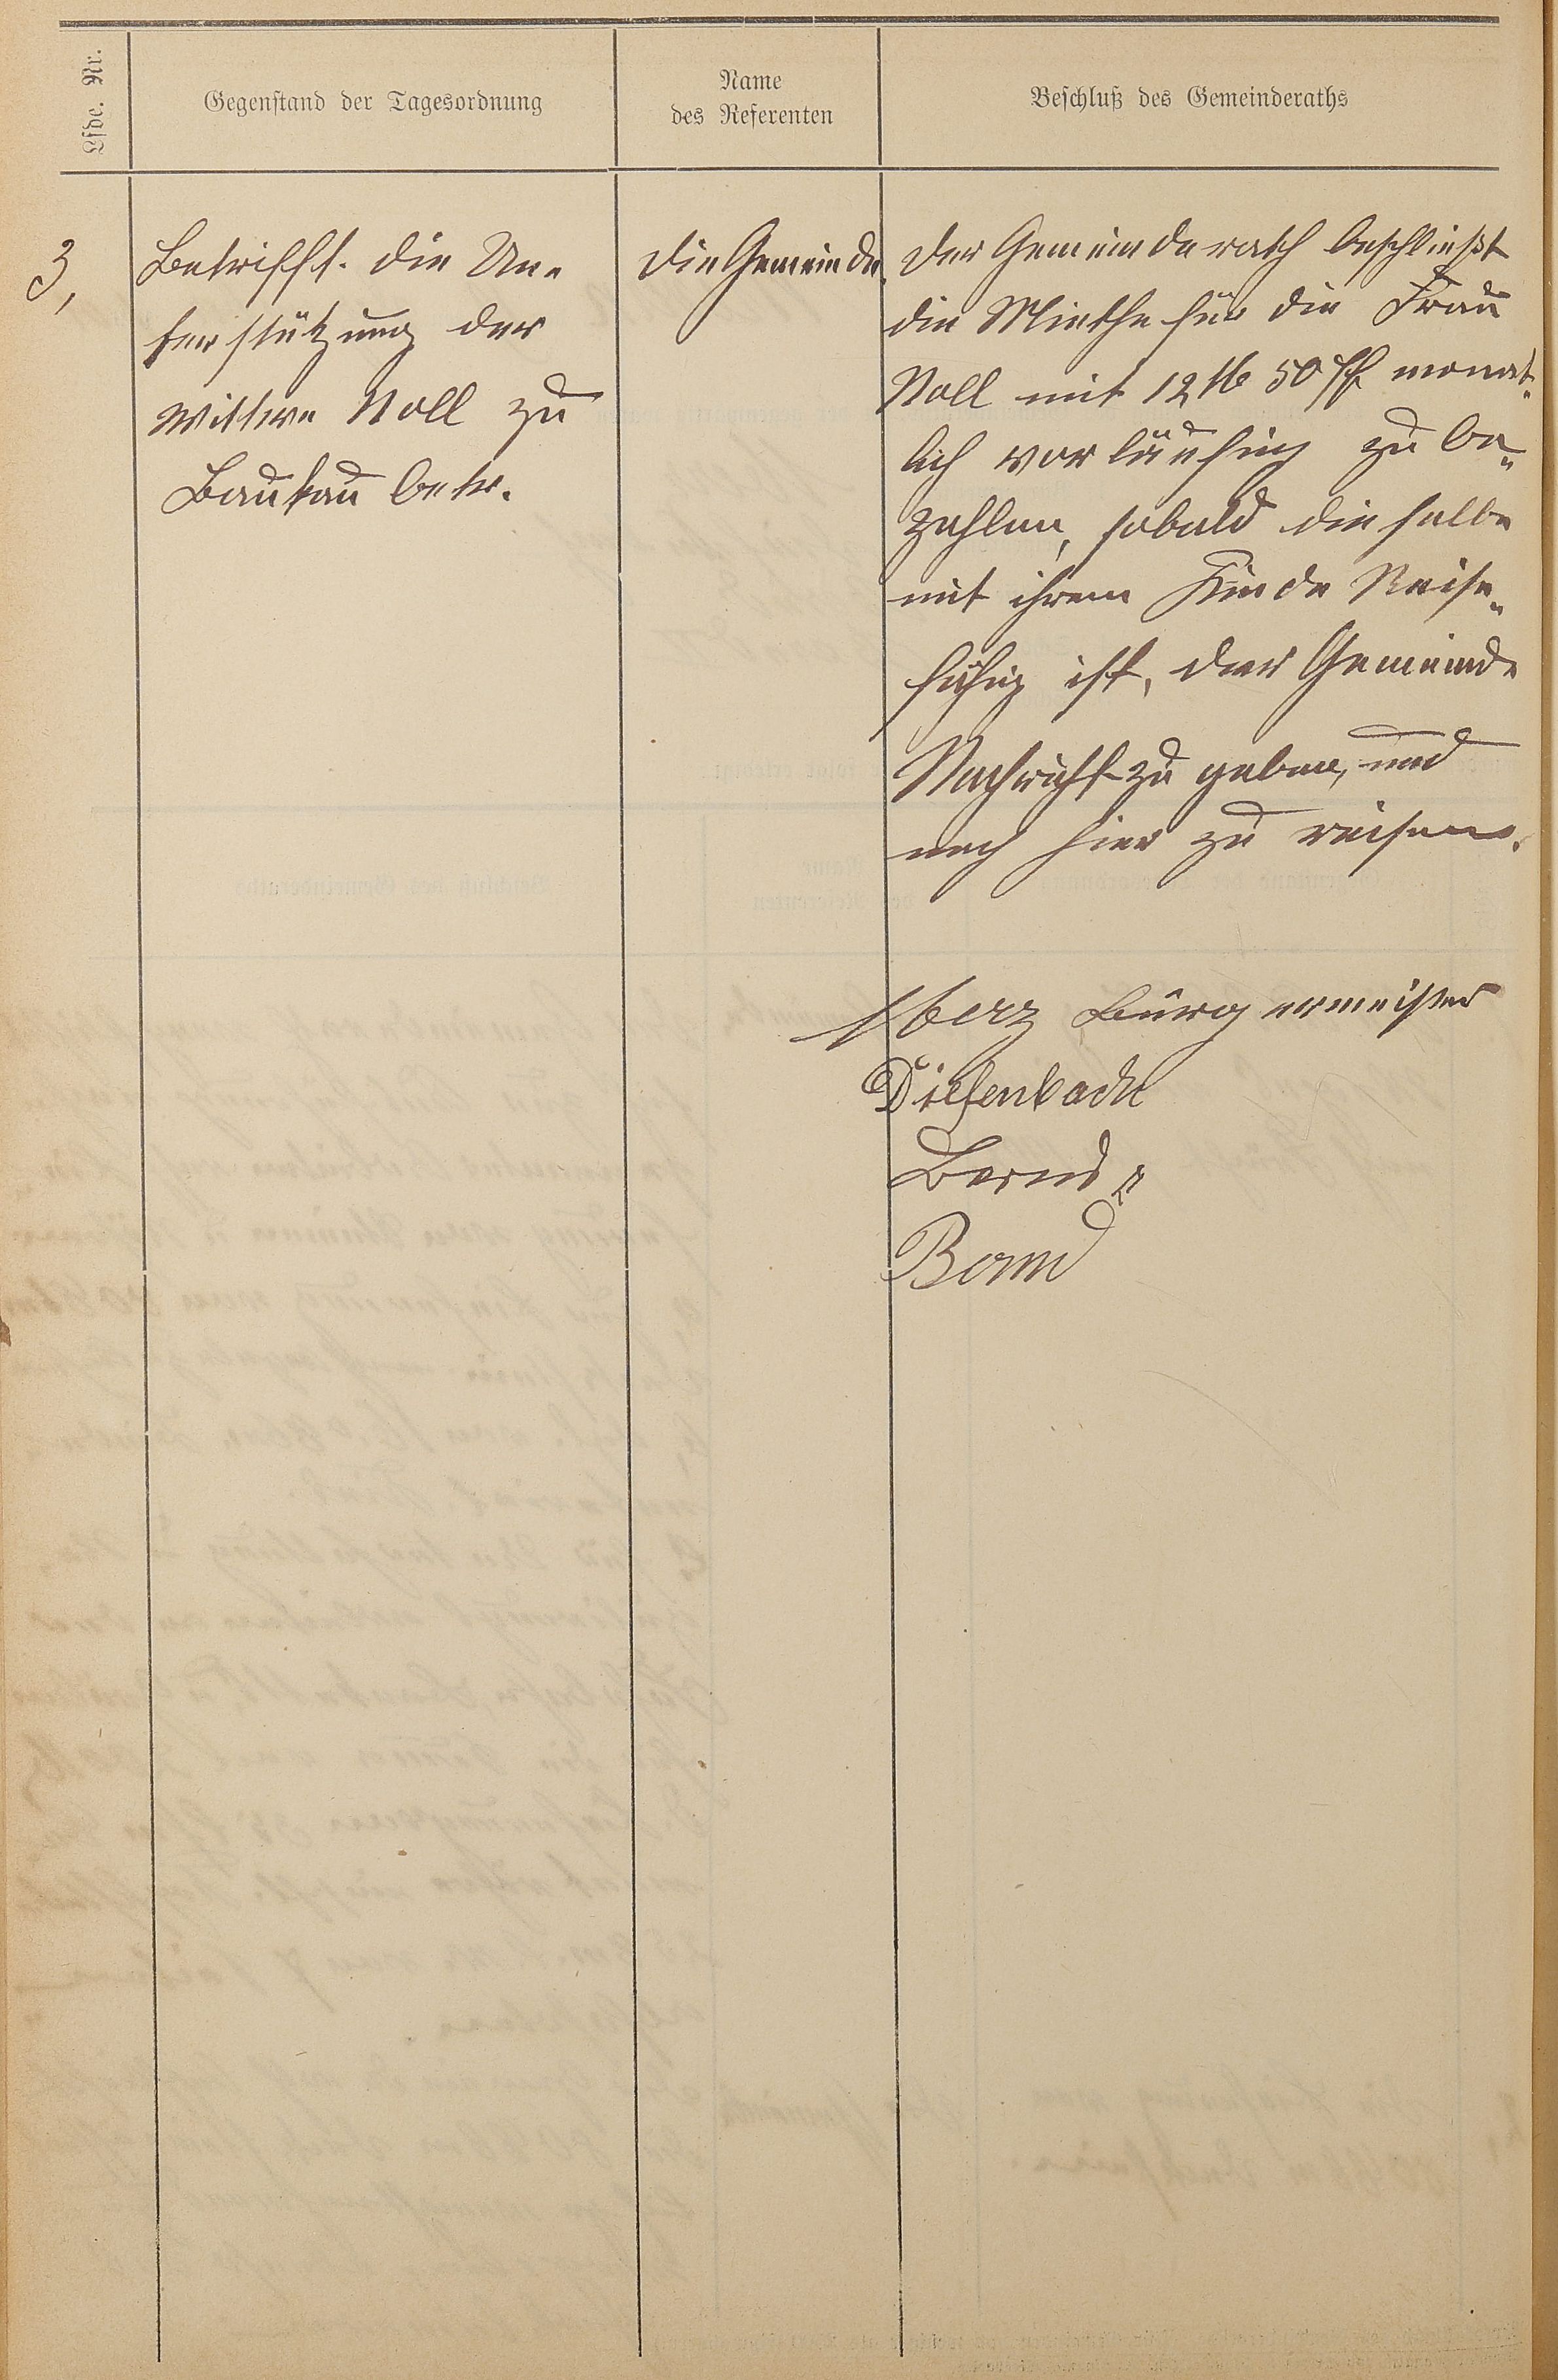 Lfde. Nr.
Gegenstand der Tagesordnung
Name
des Referenten
Beschluß des Gemeinderaths
3,
Betrifft. die Un-
terstützung der
Wittwe Noll zu
Baukau betr.
Die Gemeinde.
Der Gemeinderath beschließt
die Miethe für die Frau
Noll mit 12 M 50 Pf monat-
lich vorläufig zu be-
zahlen, sobald dieselbe
mit ihrem Kinde Reise-
fähig ist, der Gemeinde
Nachricht zu geben, und
nach hier zu reisen.
Bürgermeister
Diefenbach
Bernd